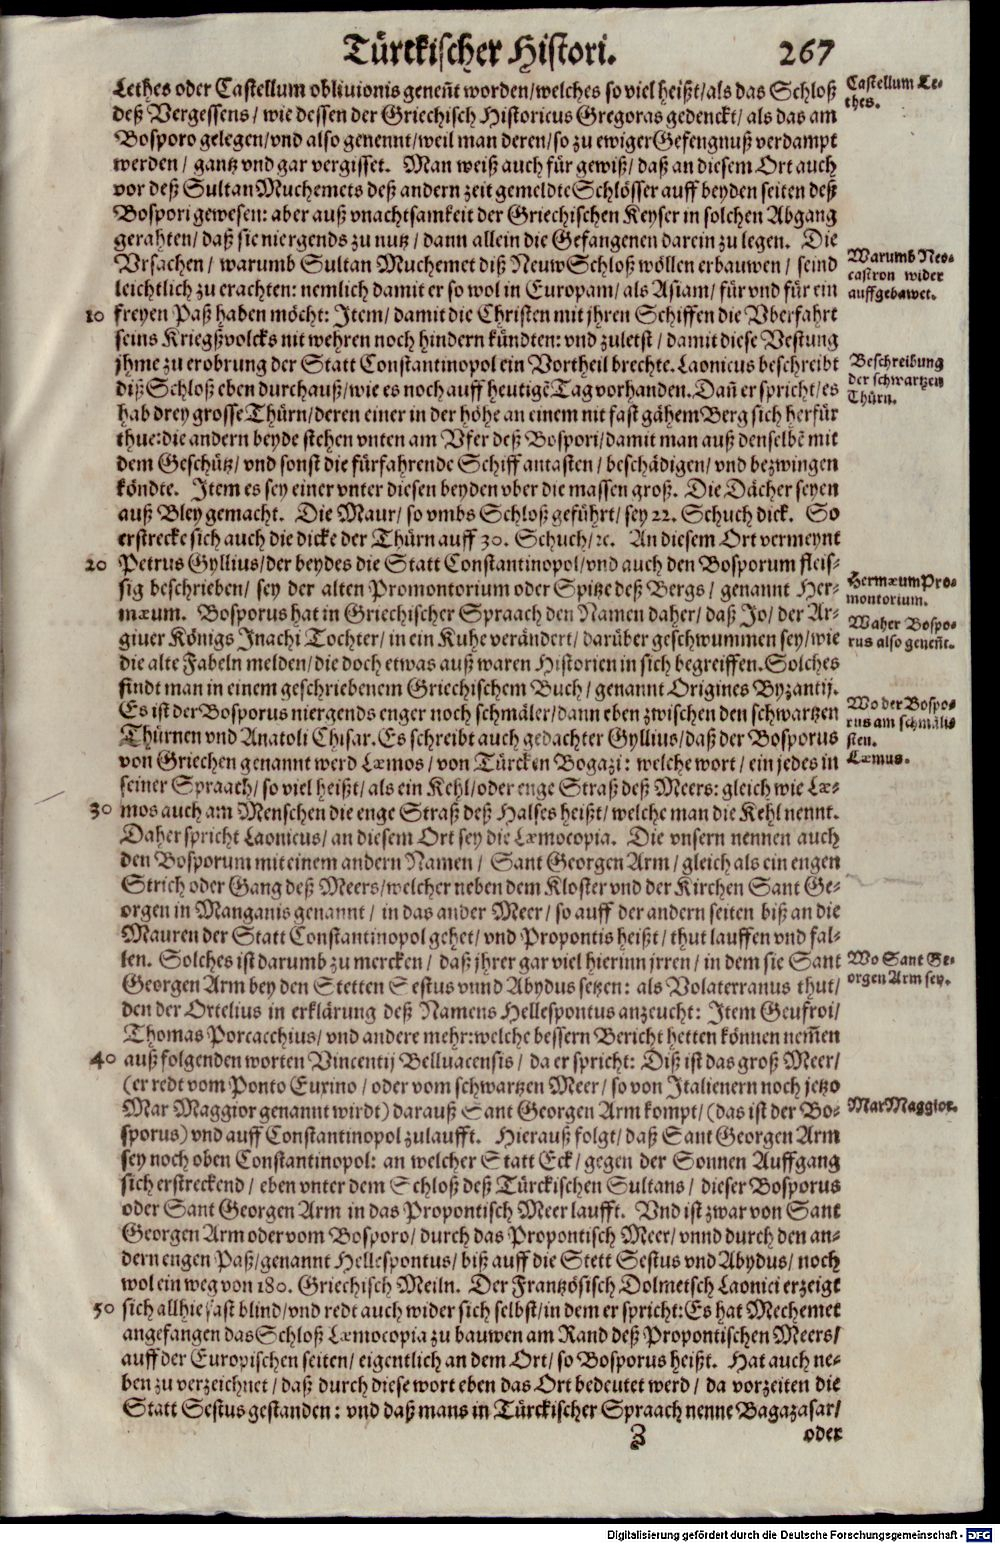 Türckischer Histori. 267
Lethes oder Castellum obliuionis geneñt worden/welches so viel heißt/als das Schloß
deß Vergessens/ wie dessen der Griechisch Historicus Gregoras gedenckt/ als das am
Bosporo gelegen/vnd also genennt/weil man deren/so zu ewiger Gefengnuß verdampt
werden/ gantz vnd gar vergisset. Man weiß auch für gewiß/ daß an diesem Ort auch
vor deß Sultan Muchemets deß andern zeit gemeldte Schlösser auff beyden seiten deß
Bospori gewesen: aber auß vnachtsamkeit der Griechischen Keyser in solchen Abgang
gerahten/ daß sie niergends zu nutz/ dann allein die Gefangenen darein zu legen. Die
Vrsachen/ warumb Sultan Muchemet diß Neuw Schloß wöllen erbauwen/ seind
leichtlich zu erachten: nemlich damit er so wol in Europam/ als Asiam/ für vnd für ein
10 freyen Paß haben möcht: Item/ damit die Christen mit jhren Schiffen die Vberfahrt
seins Kriegßvolcks nit wehren noch hindern kündten: vnd zuletst/ damit diese Vestung
jhme zu erobrung der Statt Constantinopol ein Vortheil brechte. Laonicus beschreibt
diß Schloß eben durchauß/wie es noch auff heutigē Tag vorhanden. Dañ er spricht/es
hab drey grosse Thürn/deren einer in der höhe an einem nit fast gähem Berg sich herfür
thue:die andern beyde stehen vnten am Vfer deß Bospori/damit man auß denselbē mit
dem Geschütz/ vnd sonst die fürfahrende Schiff antasten/ beschädigen/ vnd bezwingen
köndte. Item es sey einer vnter diesen beyden vber die massen groß. Die Dächer seyen
auß Bley gemacht. Die Maur/ so vmbs Schloß geführt/ sey 22. Schuch dick. So
erstrecke sich auch die dicke der Thürn auff 30. Schuch/ꝛc. An diesem Ort vermeynt
20 Petrus Gyllius/der beydes die Statt Constantinopol/vnd auch den Bosporum fleis-
sig beschrieben/ sey der alten Promontorium oder Spitze deß Bergs/ genannt Her-
mæum. Bosporus hat in Griechischer Spraach den Namen daher/ daß Jo/ der Ar-
giuer Königs Inachi Tochter/ in ein Kuhe verändert/ darüber geschwummen sey/wie
die alte Fabeln melden/die doch etwas auß waren Historien in sich begreiffen. Solches
findt man in einem geschriebenem Griechischem Buch/ genannt Origines Byzantij.
Es ist der Bosporus niergends enger noch schmäler/dann eben zwischen den schwartzen
Thürnen vnd Anatoli Chisar. Es schreibt auch gedachter Gyllius/daß der Bosporus
von Griechen genannt werd Læmos/ von Türcken Bogazi: welche wort/ ein jedes in
seiner Spraach/ so viel heißt/ als ein Kehl/oder enge Straß deß Meers: gleich wie Læ-
30 mos auch am Menschen die enge Straß deß Halses heißt/ welche man die Kehl nennt.
Daher spricht Laonicus/ an diesem Ort sey die Læmocopia. Die vnsern nennen auch
den Bosporum mit einem andern Namen/ Sant Georgen Arm/ gleich als ein engen
Strich oder Gang deß Meers/welcher neben dem Kloster vnd der Kirchen Sant Ge-
orgen in Manganis genannt/ in das ander Meer/ so auff der andern seiten biß an die
Mauren der Statt Constantinopol gehet/ vnd Propontis heißt/ thut lauffen vnd fal-
len. Solches ist darumb zu mercken/ daß jhrer gar viel hierinn jrren/ in dem sie Sant
Georgen Arm bey den Stetten Sestus vnnd Abydus setzen: als Volaterranus thut/
den der Ortelius in erklärung deß Namens Hellespontus anzeucht: Item Geufroi/
Thomas Porcacchius/ vnd andere mehr:welche bessern Bericht hetten können nem̃en
40 auß folgenden worten Vincentij Belluacensis/ da er spricht: Diß ist das groß Meer/
(er redt vom Ponto Euxino/ oder vom schwartzen Meer/ so von Italienern noch jetzo
Mar Maggior genannt wirdt) darauß Sant Georgen Arm kompt/ (das ist der Bo-
sporus) vnd auff Constantinopol zulaufft. Hierauß folgt/ daß Sant Georgen Arm
sey noch oben Constantinopol: an welcher Statt Eck/ gegen der Sonnen Auffgang
sich erstreckend/ eben vnter dem Schloß deß Türckischen Sultans/ dieser Bosporus
oder Sant Georgen Arm in das Propontisch Meer laufft. Vnd ist zwar von Sant
Georgen Arm oder vom Bosporo/ durch das Propontisch Meer/ vnnd durch den an-
dern engen Paß/genannt Hellespontus/ biß auff die Stett Sestus vnd Abydus/ noch
wol ein weg von 180. Griechisch Meiln. Der Frantzösisch Dolmetsch Laonici erzeigt
50 sich allhie fast blind/vnd redt auch wider sich selbst/in dem er spricht:Es hat Mechemet
angefangen das Schloß Læmocopia zu bauwen am Rand deß Propontischen Meers/
auff der Europischen seiten/ eigentlich an dem Ort/ so Bosporus heißt. Hat auch ne-
ben zu verzeichnet/ daß durch diese wort eben das Ort bedeutet werd/ da vorzeiten die
Statt Sestus gestanden: vnd daß mans in Türckischer Spraach nenne Bagazasar/
Z oder
Castellum Le-
thes.
Warumb Neo-
castron wider
auffgebawet.
Beschreibung
der schwartzen
Thürn.
Hermæum Pro-
montorium.
Waher Bospo-
rus also geneñt.
Wo der Bospo-
rus am schmäli-
sten.
Læmus.
Wo Sant Ge-
orgen Arm sey.
Mar Maggior.
Digitalisierung gefördert durch die Deutsche Forschungsgemeinschaft - DFG